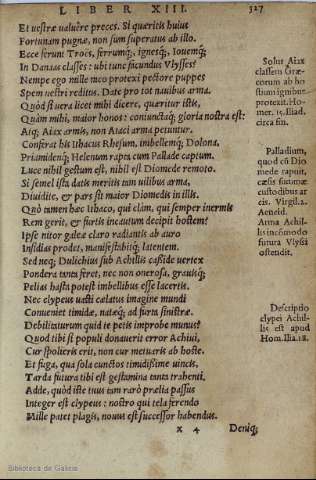 LIBER XIII. 327
Et vestræ valuêre preces. Si quæritis huius
Fortunam pugnæ, non sum superatus ab illo.
Ecce ferunt Troës, ferrumq́;, ignesq́;, Iouemq́;
In Danaas classes: vbi nunc facundus Vlysses?
Nempe ego mille meo protexi pectore puppes
Spem vestri reditus. Date pro tot nauibus arma.
Quòd si vera licet mihi dicere, quæritur istis,
Quàm mihi, maior honos: coniunctaq́; gloria nostra est:
Atq; Aiax armis, non Aiaci arma petuntur.
Conferat his Ithacus Rhesum, imbellemq́; Dolona,
Priamidenq́; Helenum rapta cum Pallade captum.
Luce nihil gestum est, nihil est Diomede remoto.
Si semel ista datis meritis tam vilibus arma,
Diuidite, & pars sit maior Diomedis in illis.
Quò tamen hæc Ithaco, qui clàm, qui semper inermis
Rem gerit, & furtis incautum decipit hostem?
Ipse nitor galeæ claro radiantis ab auro
Insidias prodet, manifestabitq́; latentem.
Sed neq; Dulichius sub Achillis casside vertex
Pondera tanta feret, nec non onerosa, grauisq́;
Pelias hasta potest imbellibus esse lacertis.
Nec clypeus vasti cælatus imagine mundi
Conueniet timidæ, natæq; ad furta sinistræ.
Debilitaturum quid te petis improbe munus?
Quod tibi si populi donauerit error Achiui,
Cur spolieris erit, non cur metuaris ab hoste.
Et fuga, qua sola cunctos timidissime vincis,
Tarda futura tibi est gestamina tanta trahenti.
Adde, quòd iste tuus tam rarò prælia passus
Integer est clypeus: nostro qui tela ferendo
Mille patet plagis, nouus est successor habendus.
x 4 Deniq;
Solus Aiax
classem Græ-
corum ab ho
stium ignibus
protexit. Ho-
mer. 15. Iliad.
circa fin.
Palladium,
quod cũ Dio
mede rapuit,
cæsis summæ
custodibus ar
cis. Virgil. 2.
Aeneid.
Arma Achil-
lis incõmodo
futura Vlyssi
ostendit.
Descriptio
clypei Achil-
lis est apud
Hom. Ilia. 18.
Biblioteca de Galicia